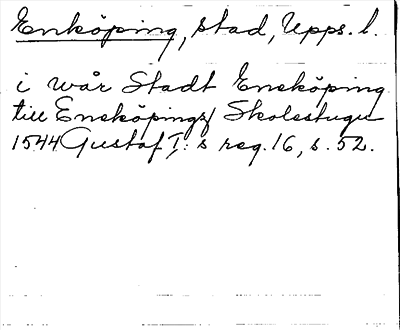 Enköping, stad, Upps. l.
i wår Stadt Eneköping
till Eneköpings Skolestugu
1544 Gustaf I:s reg. 16, s. 52.